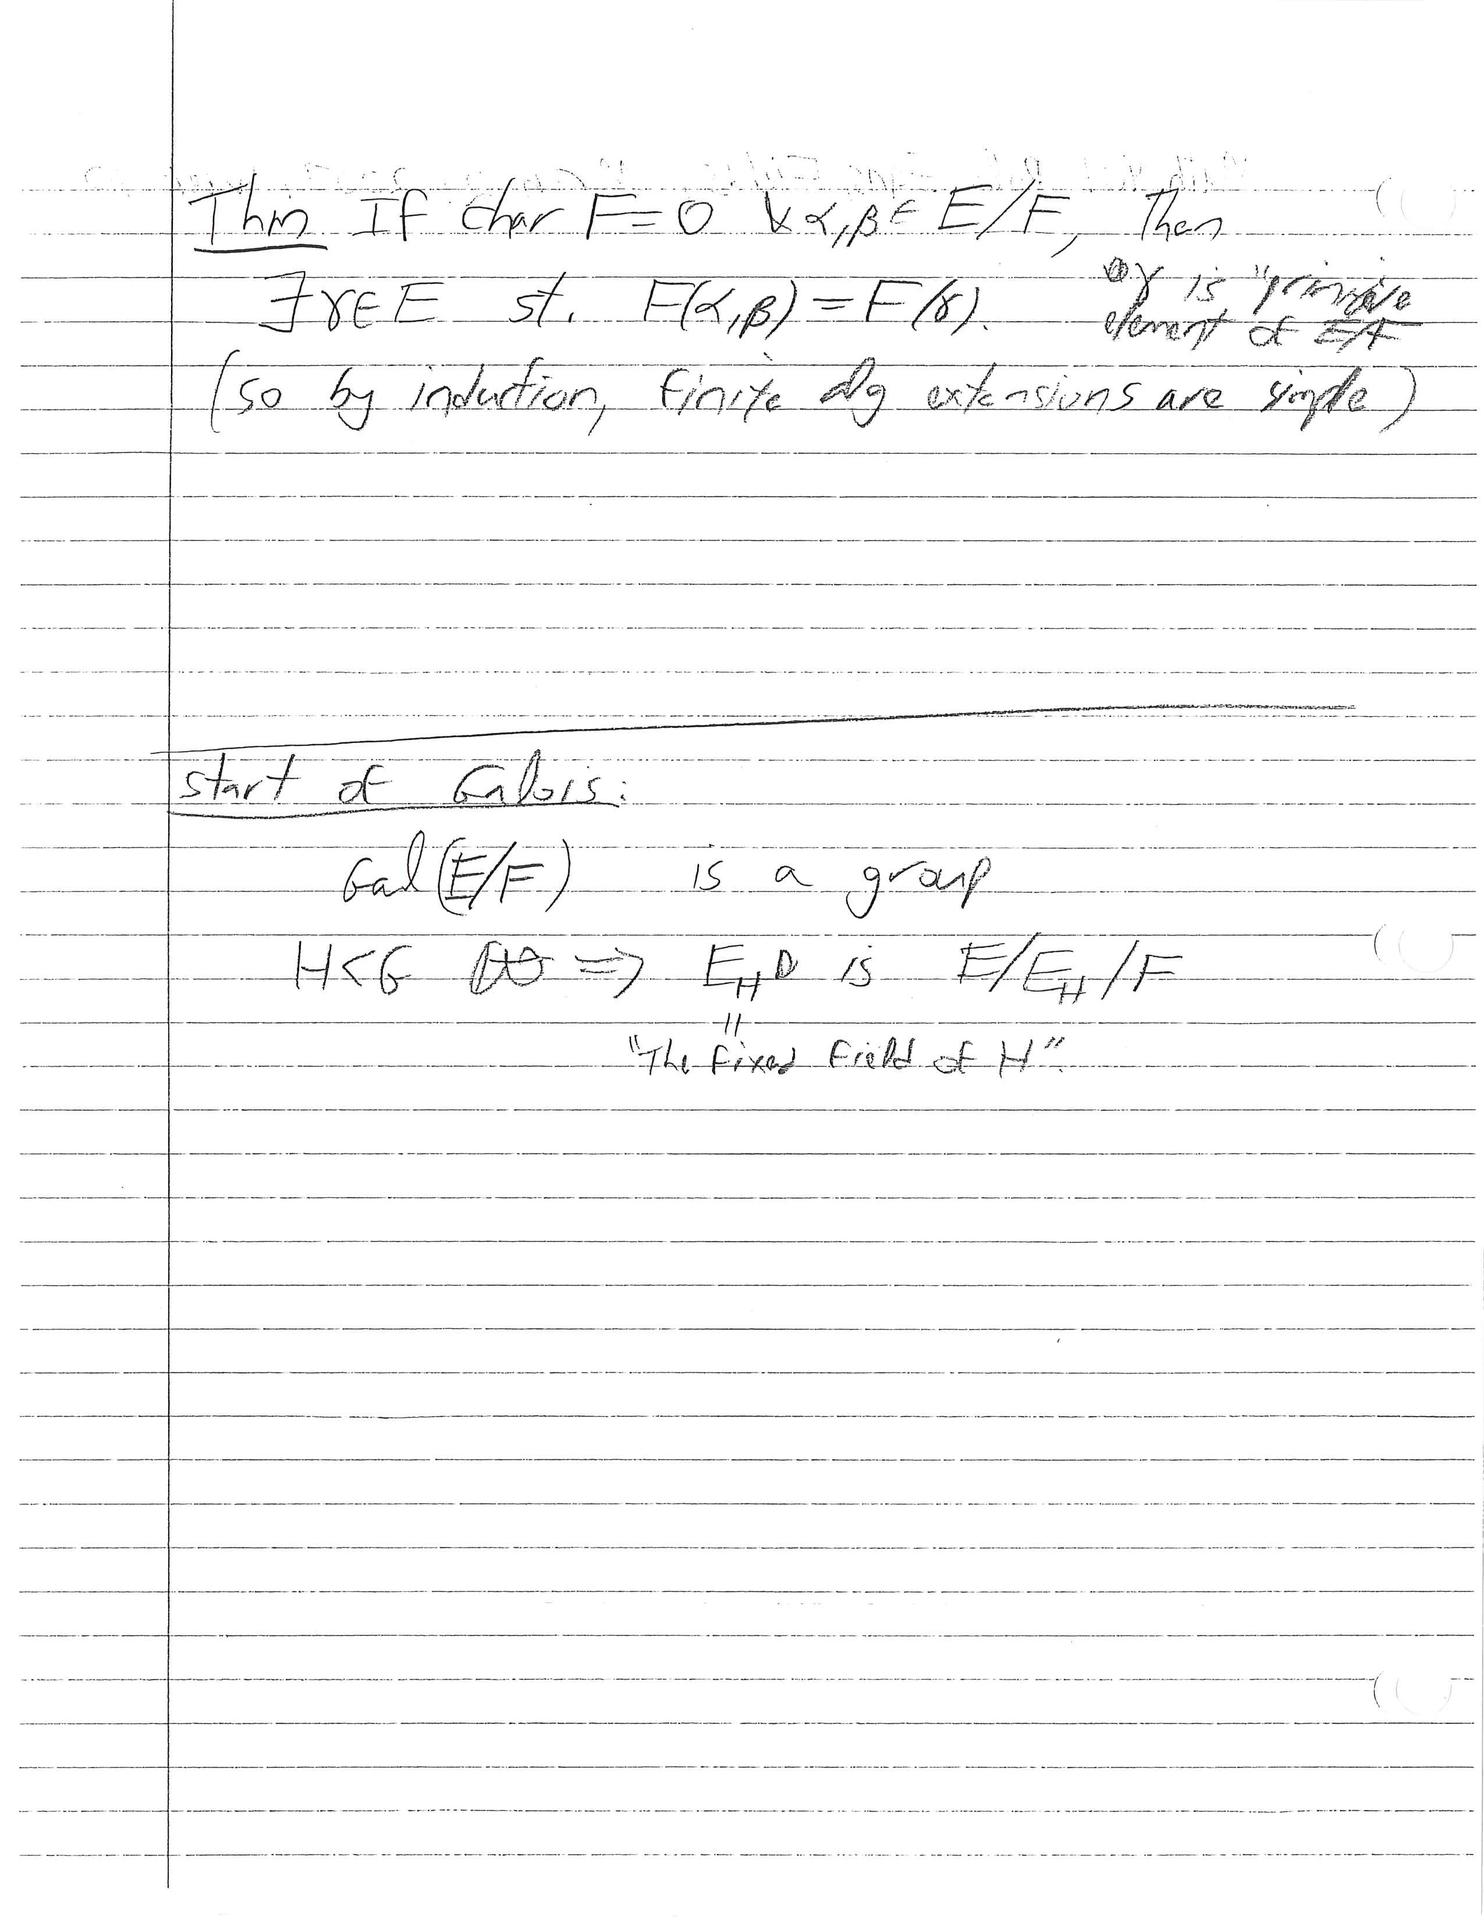 Thm If char F=0 ∀ α,β∈ E/F, Then
∃γ∈E st. F(α,β)=F(γ).
γ is "primitive
element of E/F
(so by induction, finite alg extensions are simple)
start of Galois:
Gal(E/F) is a group
H<G ⇒ E_H is E/E_H/F
"
"The fixed field of H"